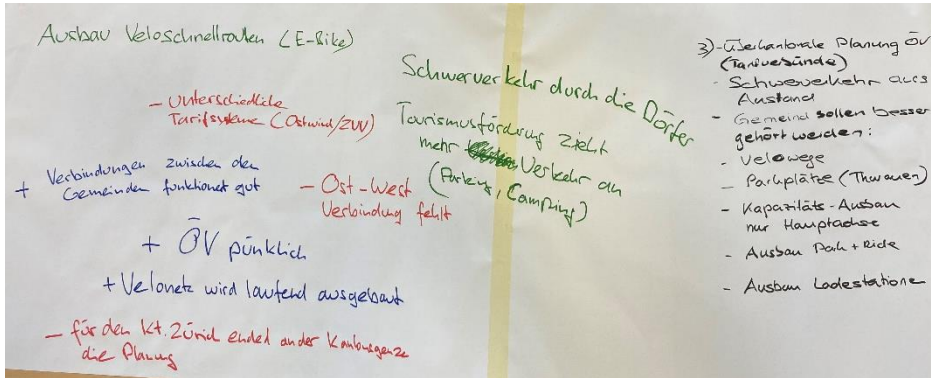 Ausbau Veloschnellrouten (E-Bike)
- Unterschiedliche
Tarifsysteme (Ostwind/ZVV)
+ Verbindungen zwischen den
Gemeinden funktionet gut
- Ost-West
Verbindung fehlt
+ ÖV pünklich
+ Velonetz wird laufend ausgebaut
- für den Kt. Zürich ended an der Kantonsgenze
die Planung
Schwerverkehr durch die Dörfer
Tourismusfördrung zieht
mehr Verkehr an
(Parking, Camping)
3) - Überkantonale Planung ÖV
(Tarifverbünde)
- Schwerverkehr aus
Ausland
- Gemeind sollen besser
gehört werden:
- Velowege
- Parkplätze (Thurauen)
- Kapazitäts-Ausbau
nur Hauptachse
- Ausbau Park + Ride
- Ausbau Ladestatione